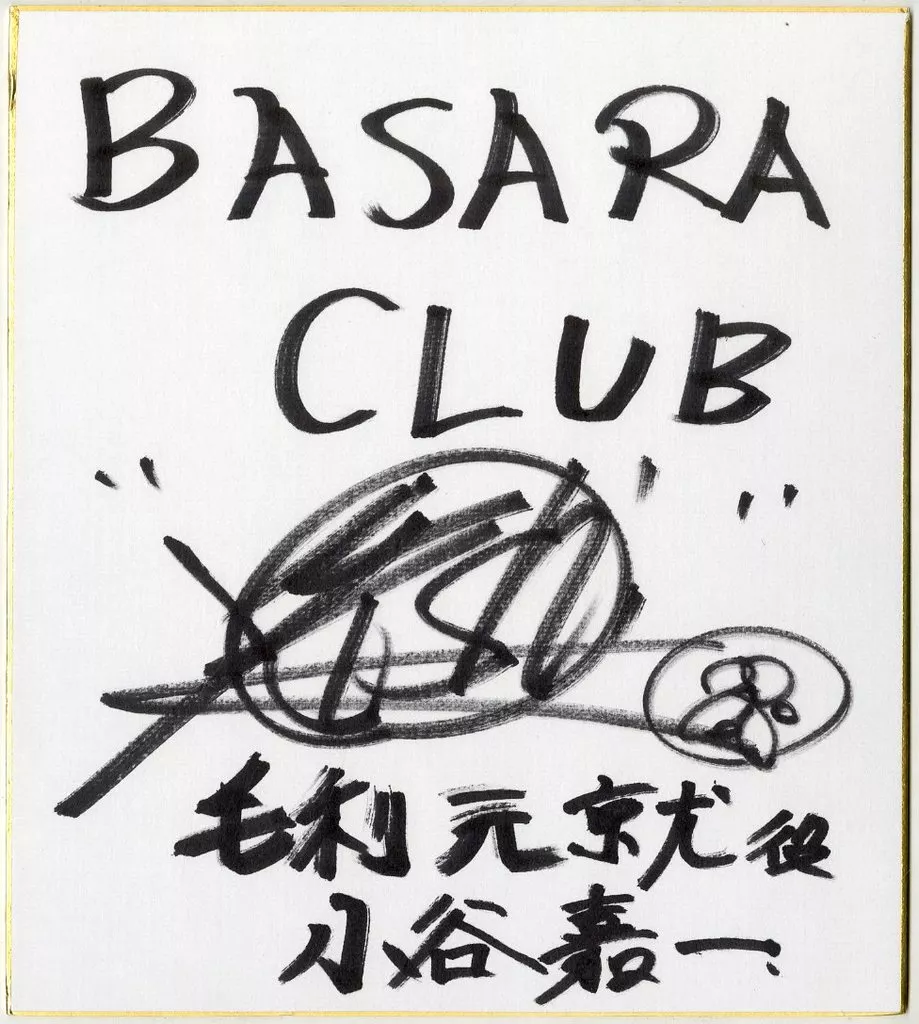 BASARA
CLUB
毛利元就役
小谷嘉一